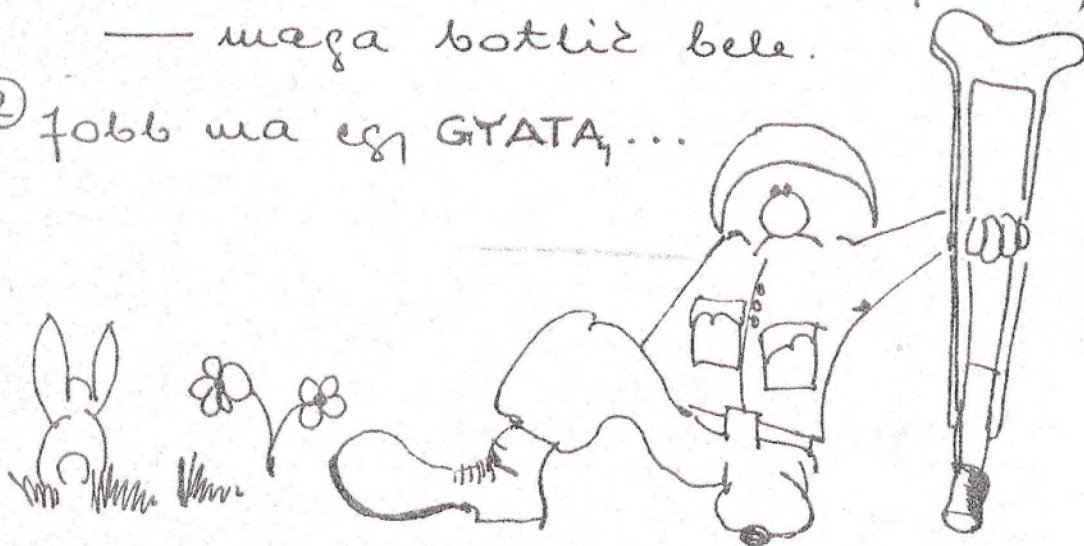 — maga botlik bele.
② Jobb ma egy GYATA, ...